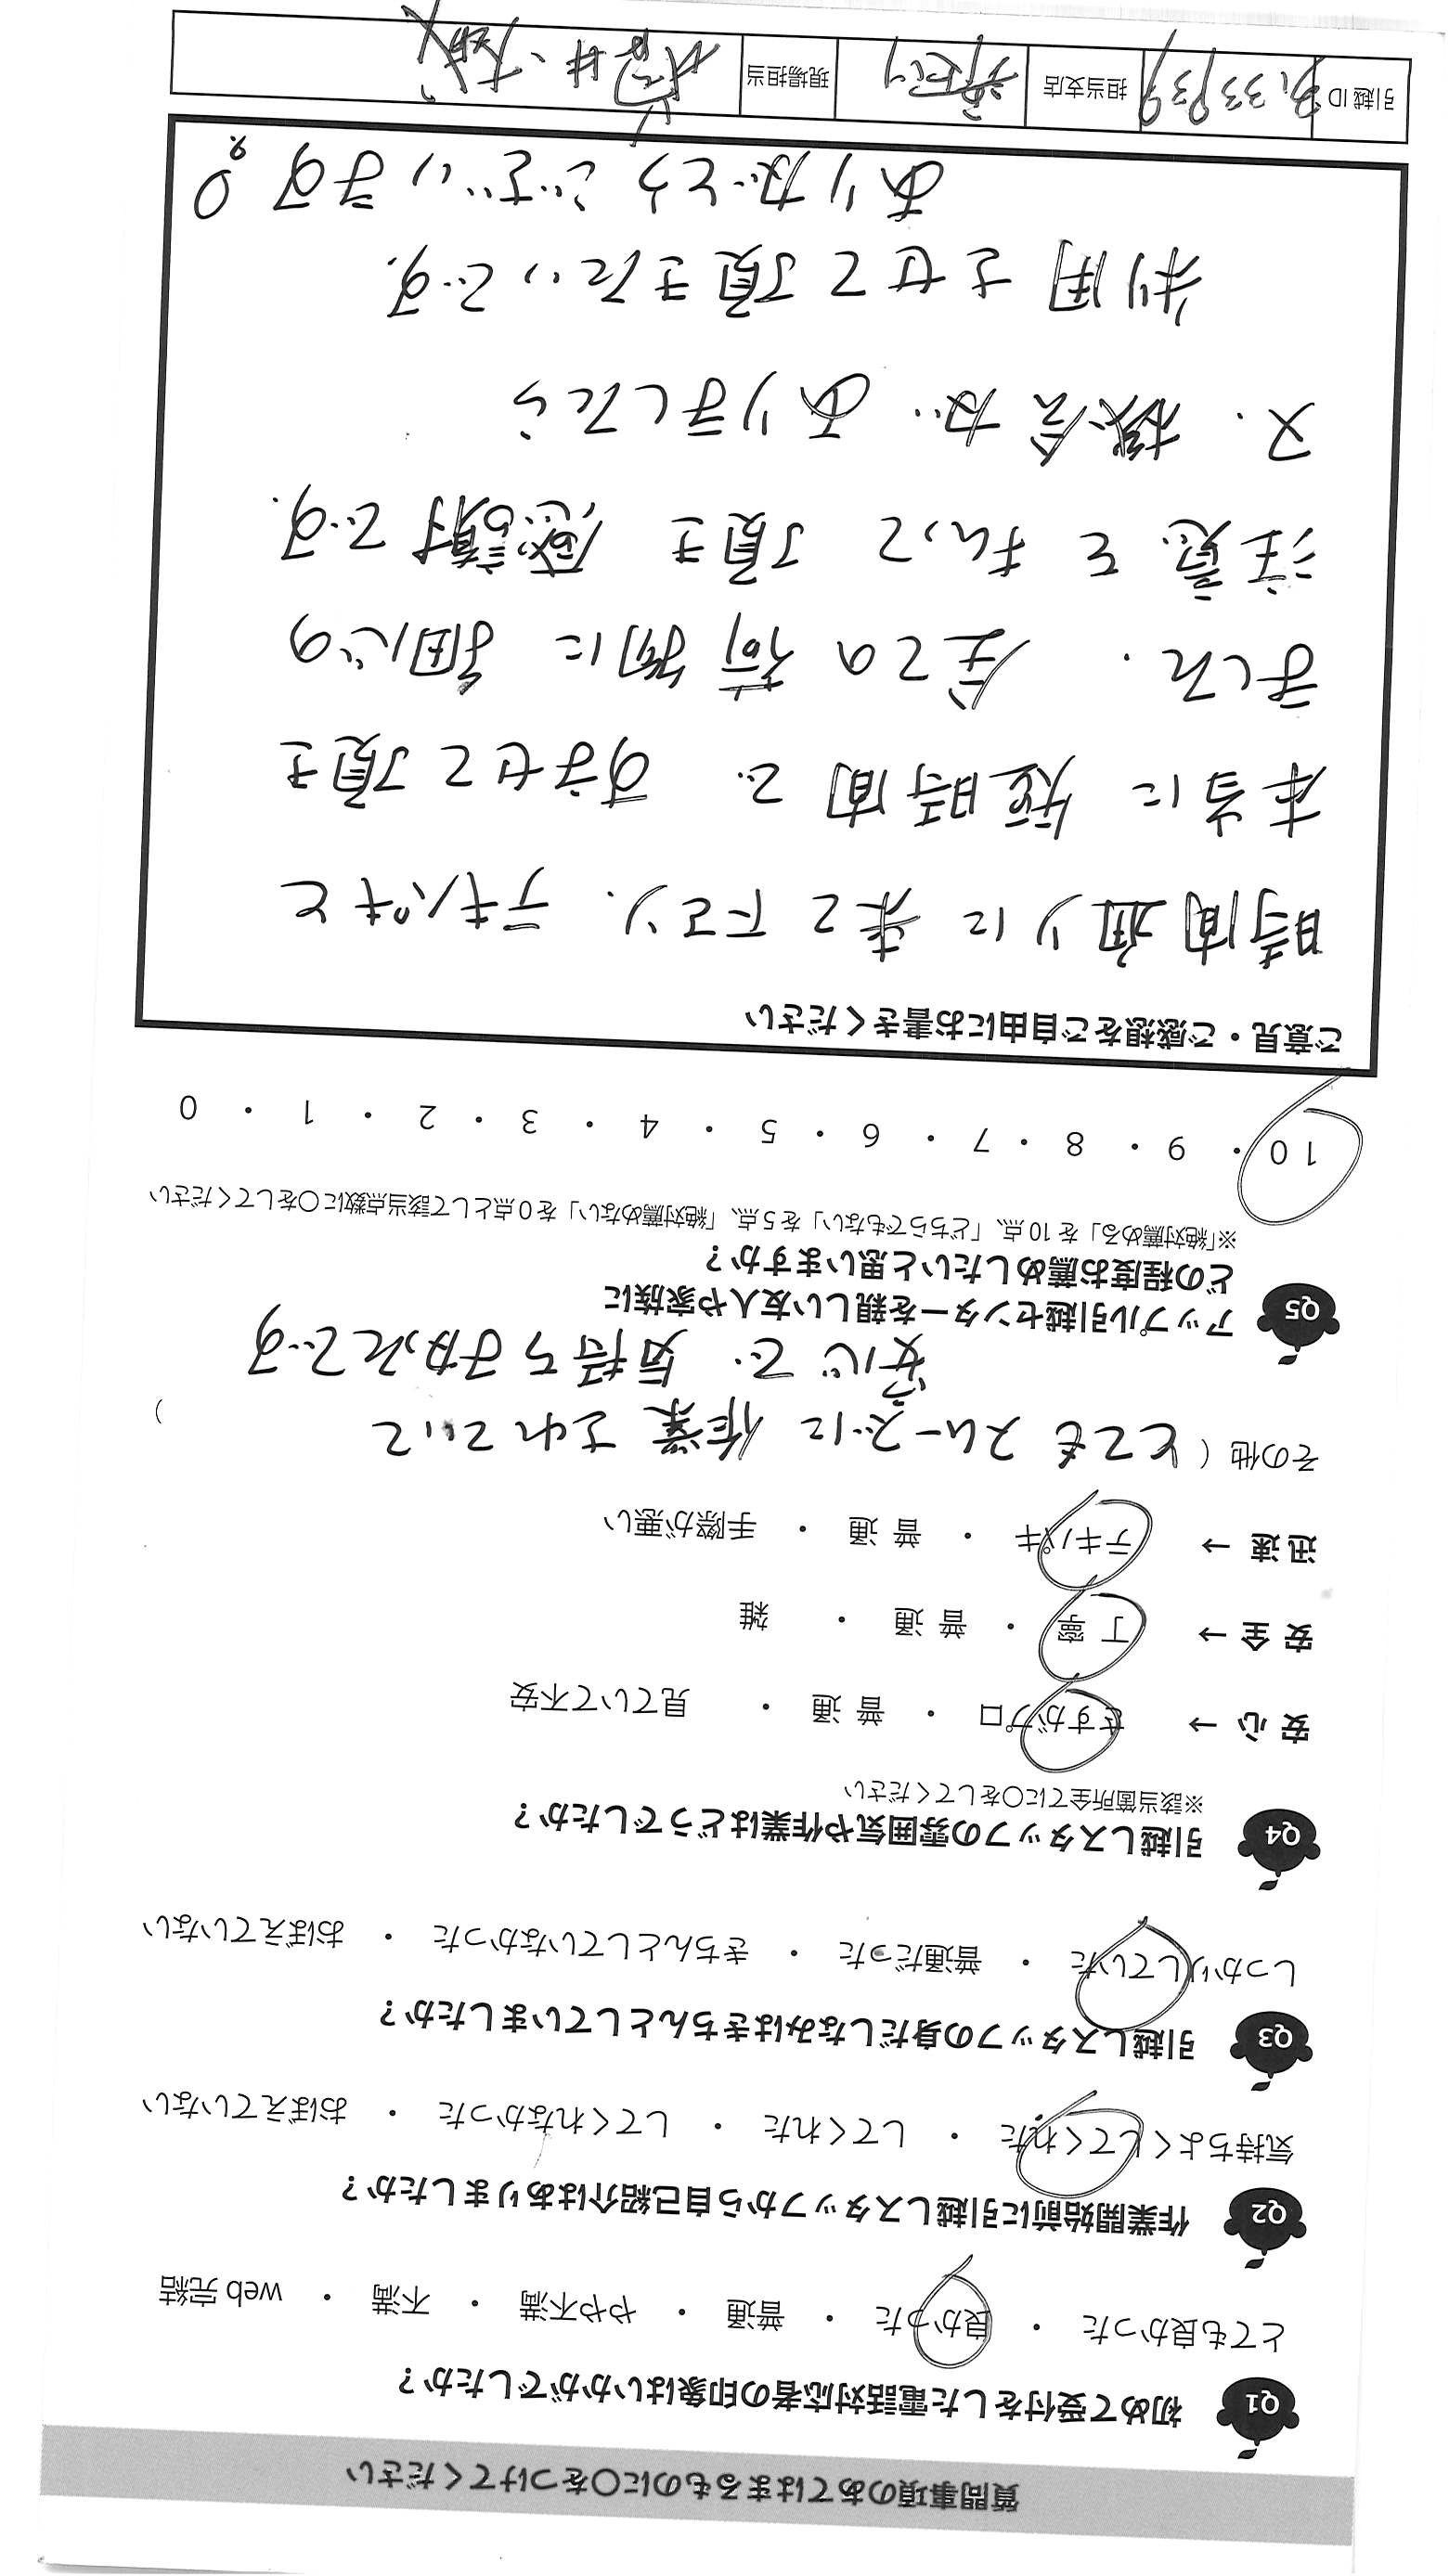 質問事項のあてはまるものに〇をつけてください
Q1 初めて受付をした電話対応者の印象はいかがでしたか？
とても良かった ・ 良かった ・ 普通 ・ やや不満 ・ 不満 ・ web 完結
Q2 作業開始前に引越しスタッフから自己紹介はありましたか？
気持ちよくしてくれた ・ してくれた ・ してくれなかった ・ おぼえていない
Q3 引越しスタッフの身だしなみはきちんとしていましたか？
しっかりしていた ・ 普通だった ・ きちんとしていなかった ・ おぼえていない
Q4 引越しスタッフの雰囲気や作業はどうでしたか？
※該当箇所全てに〇をしてください
安 心 → さすがプロ ・ 普 通 ・ 見ていて不安
安 全 → 丁 寧 ・ 普 通 ・ 雑
迅 速 → テキパキ ・ 普 通 ・ 手際が悪い
その他（ とても スムーズに 作業 されていて
安心で 気持ちよかったです ）
Q5 アップル引越センターを親しい友人や家族に
どの程度お薦めしたいと思いますか？
※「絶対薦める」を 10 点、「どちらでもない」を 5 点、「絶対薦めない」を 0 点として該当点数に〇をしてください
10 ・ 9 ・ 8 ・ 7 ・ 6 ・ 5 ・ 4 ・ 3 ・ 2 ・ 1 ・ 0
ご意見・ご感想をご自由にお書きください
時間通りに 来て下さり、テキパキと
本当に 短時間で すませて頂き
ました。 全ての 荷物に 細心の
注意を 払って 頂き 感謝です。
又、機会が ありましたら
利用 させて 頂きたいです。
ありがとうございます
引越 ID 担当支店 現場担当